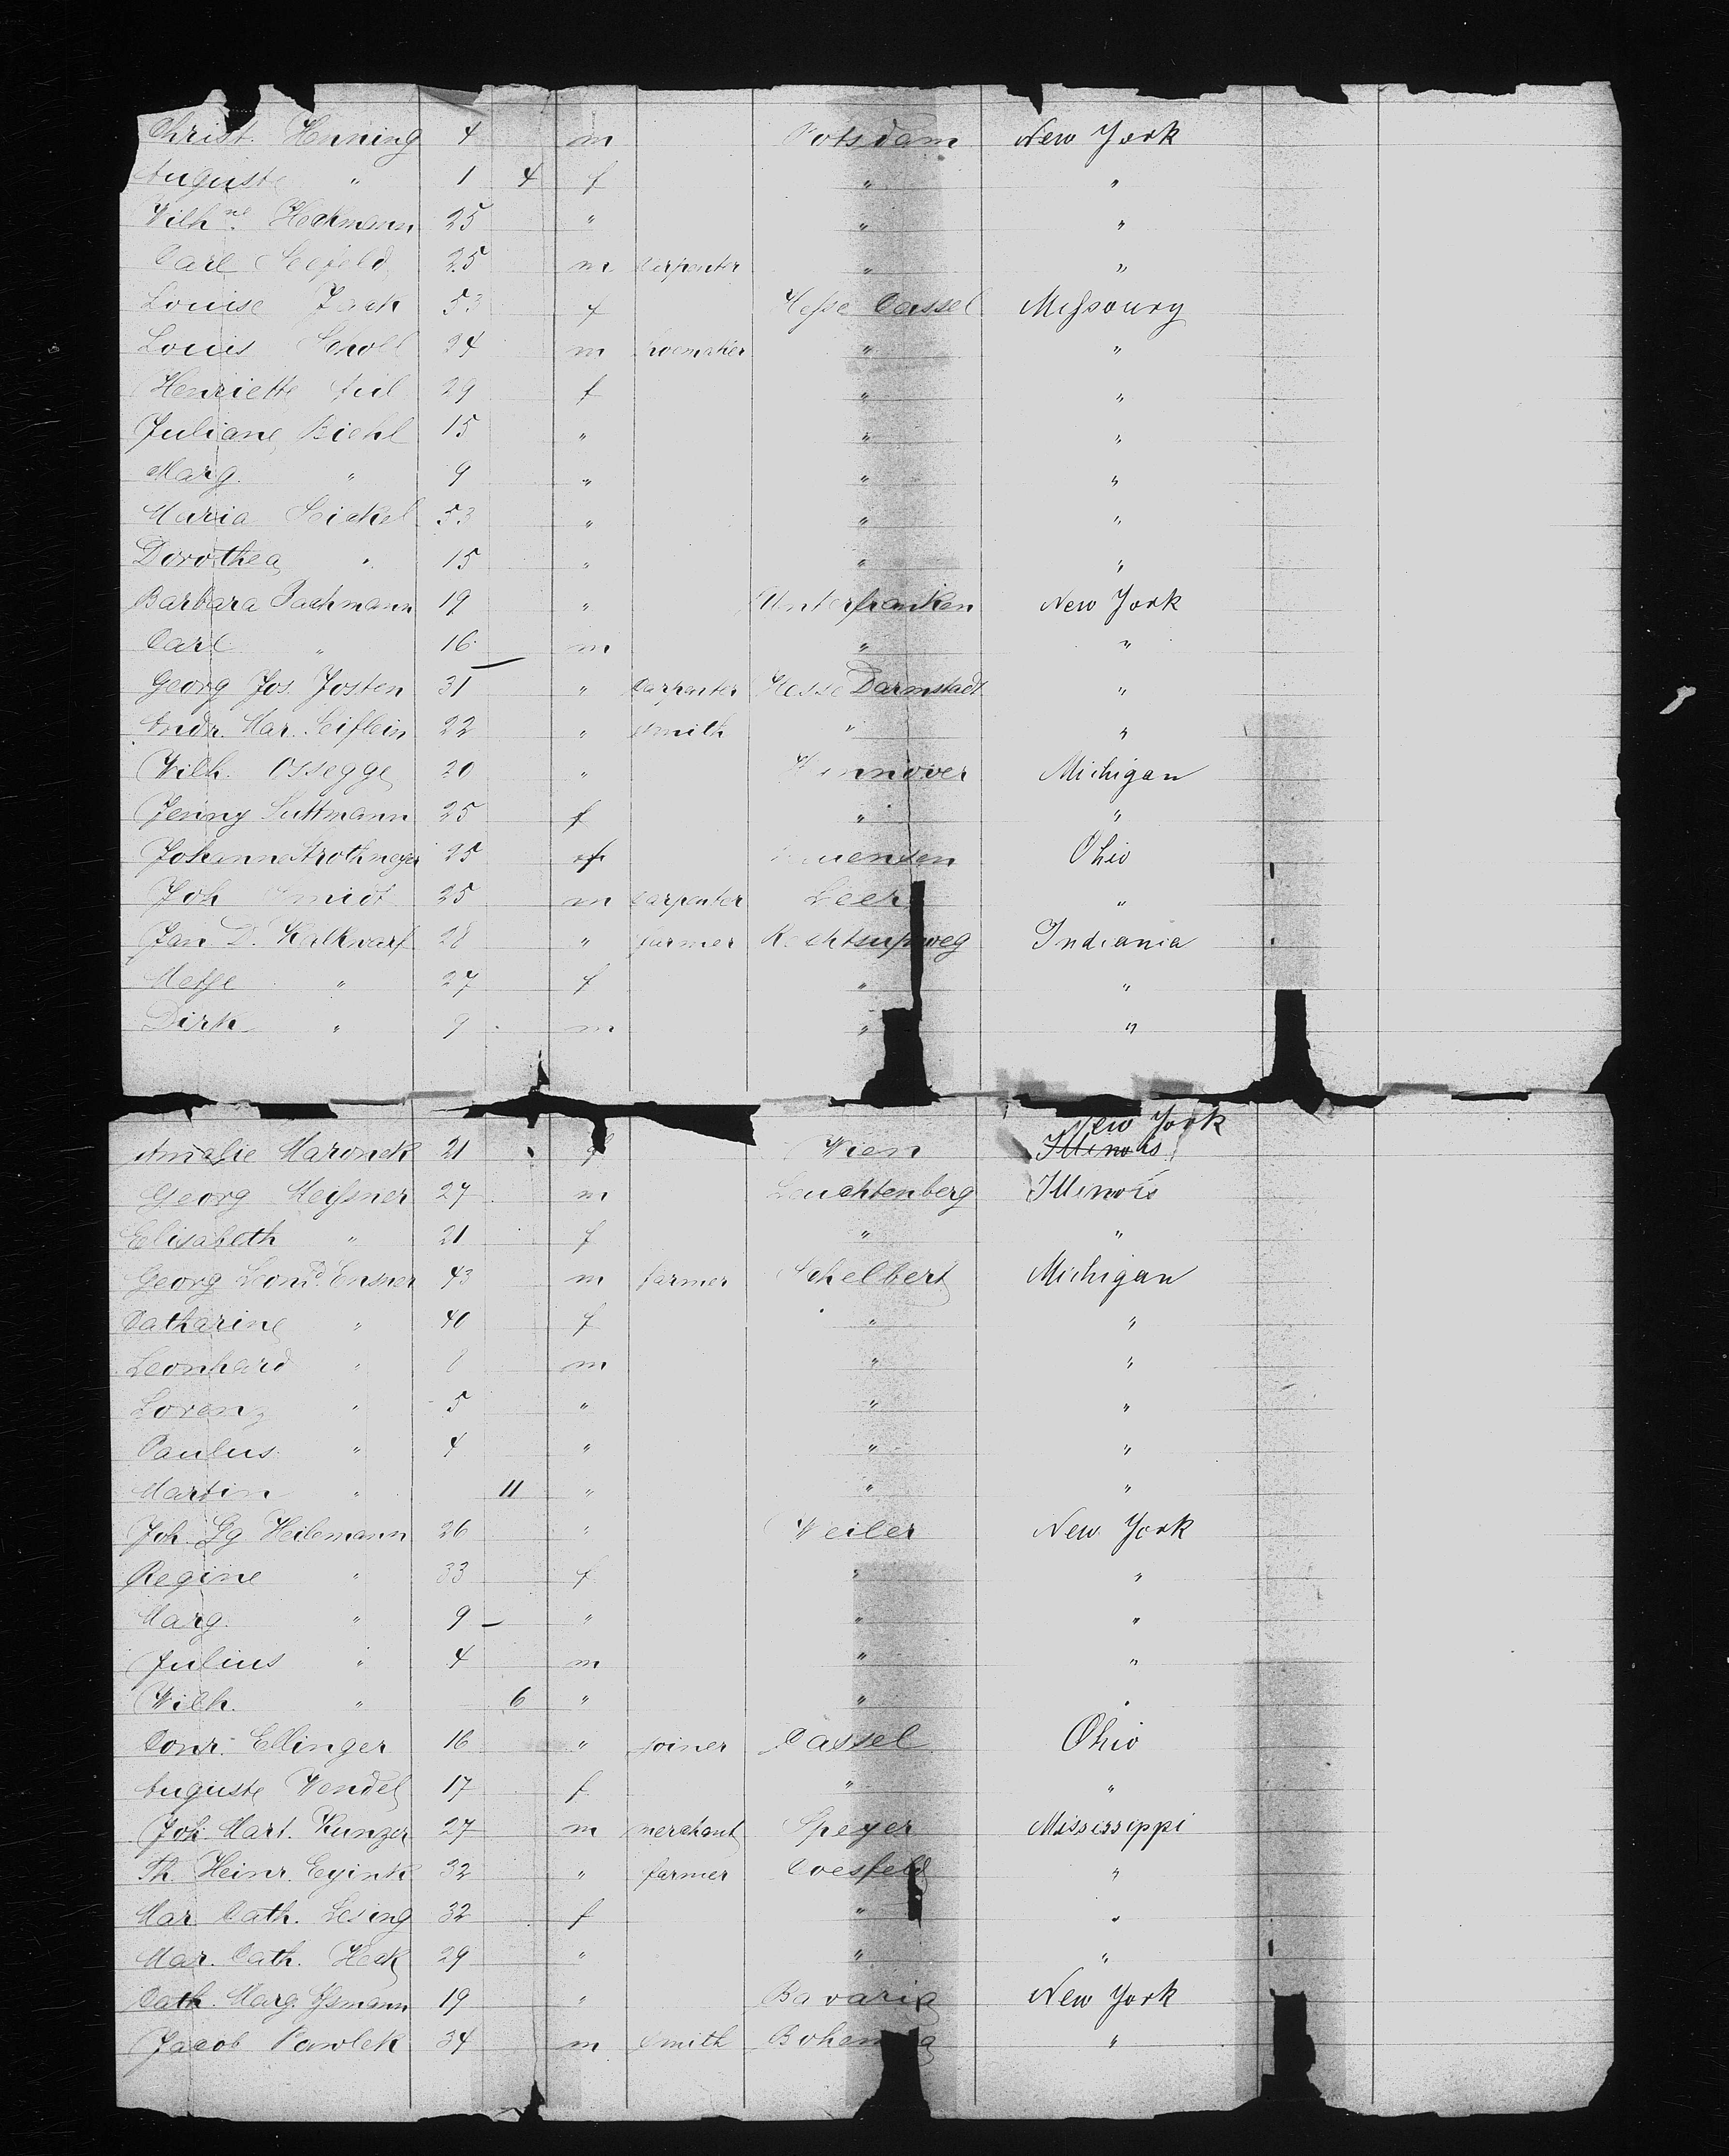 Christ. Henning 4 m Potsdam New York
Auguste " 1 4 f " "
Wilh.ne Heckmann 25 " " "
Carl Seefeld 25 m Carpenter " "
Louise 53 f Hesse Cassel Messoury
Louis 24 m shoemaker " "
Henriette 29 f " "
Juliane Biehl 15 " " "
Marg. " 9 " " "
Maria Seickel 53 " " "
Dorothea " 15 " " "
Barbara Bachmann 19 " Unterfranken New York
Carl " 16 m " "
Georg Jos. Josten 31 " Carpenter Hesse Darmstadt "
Andr. Mar. Seiflein 22 " smith " "
Wilh. Ossegge 20 " Hannover Michigan
Jenny Suttmann 25 f " "
Johanne Strothmeyer 25 f Ohio
Joh Smidt 25 m Carpenter Leer "
Jan D. Kalkwarf 28 " farmer Rechtsupweg Indiania
Metje " 27 f " "
Dirk " 9 m " "
Amalie Maronek 21 f Wien New York Illinois
Georg Meissner 27 m Leuchtenberg Illinois
Elisabeth " 21 f " "
Georg Leond. Ensner 43 m farmer Schelbert Michigan
Catharine " 40 f " "
Leonhard " 8 m " "
Lorenz " 5 " " "
Paulus " 4 " " "
Martin " 11 " " "
Joh. Gg Heilemann 26 " Weiler New York
Regine " 33 f " "
Marg. " 9 " " "
Julius " 4 m " "
Wilh. " 6 " " "
Conr. Ellinger 16 " joiner Cassel Ohio
Auguste Wendel 17 f " "
Joh. Mart. Kunzer 27 m merchant Speyer Mississippi
Th. Heinr. Eyink 32 " farmer Coesfeld "
Mar. Cath. Lesing 32 f " "
Mar. Cath. Heck 29 " " "
Cath. Marg. 19 " Bavaria New York
Jacob Pawlek 34 m Smith Bohemia "